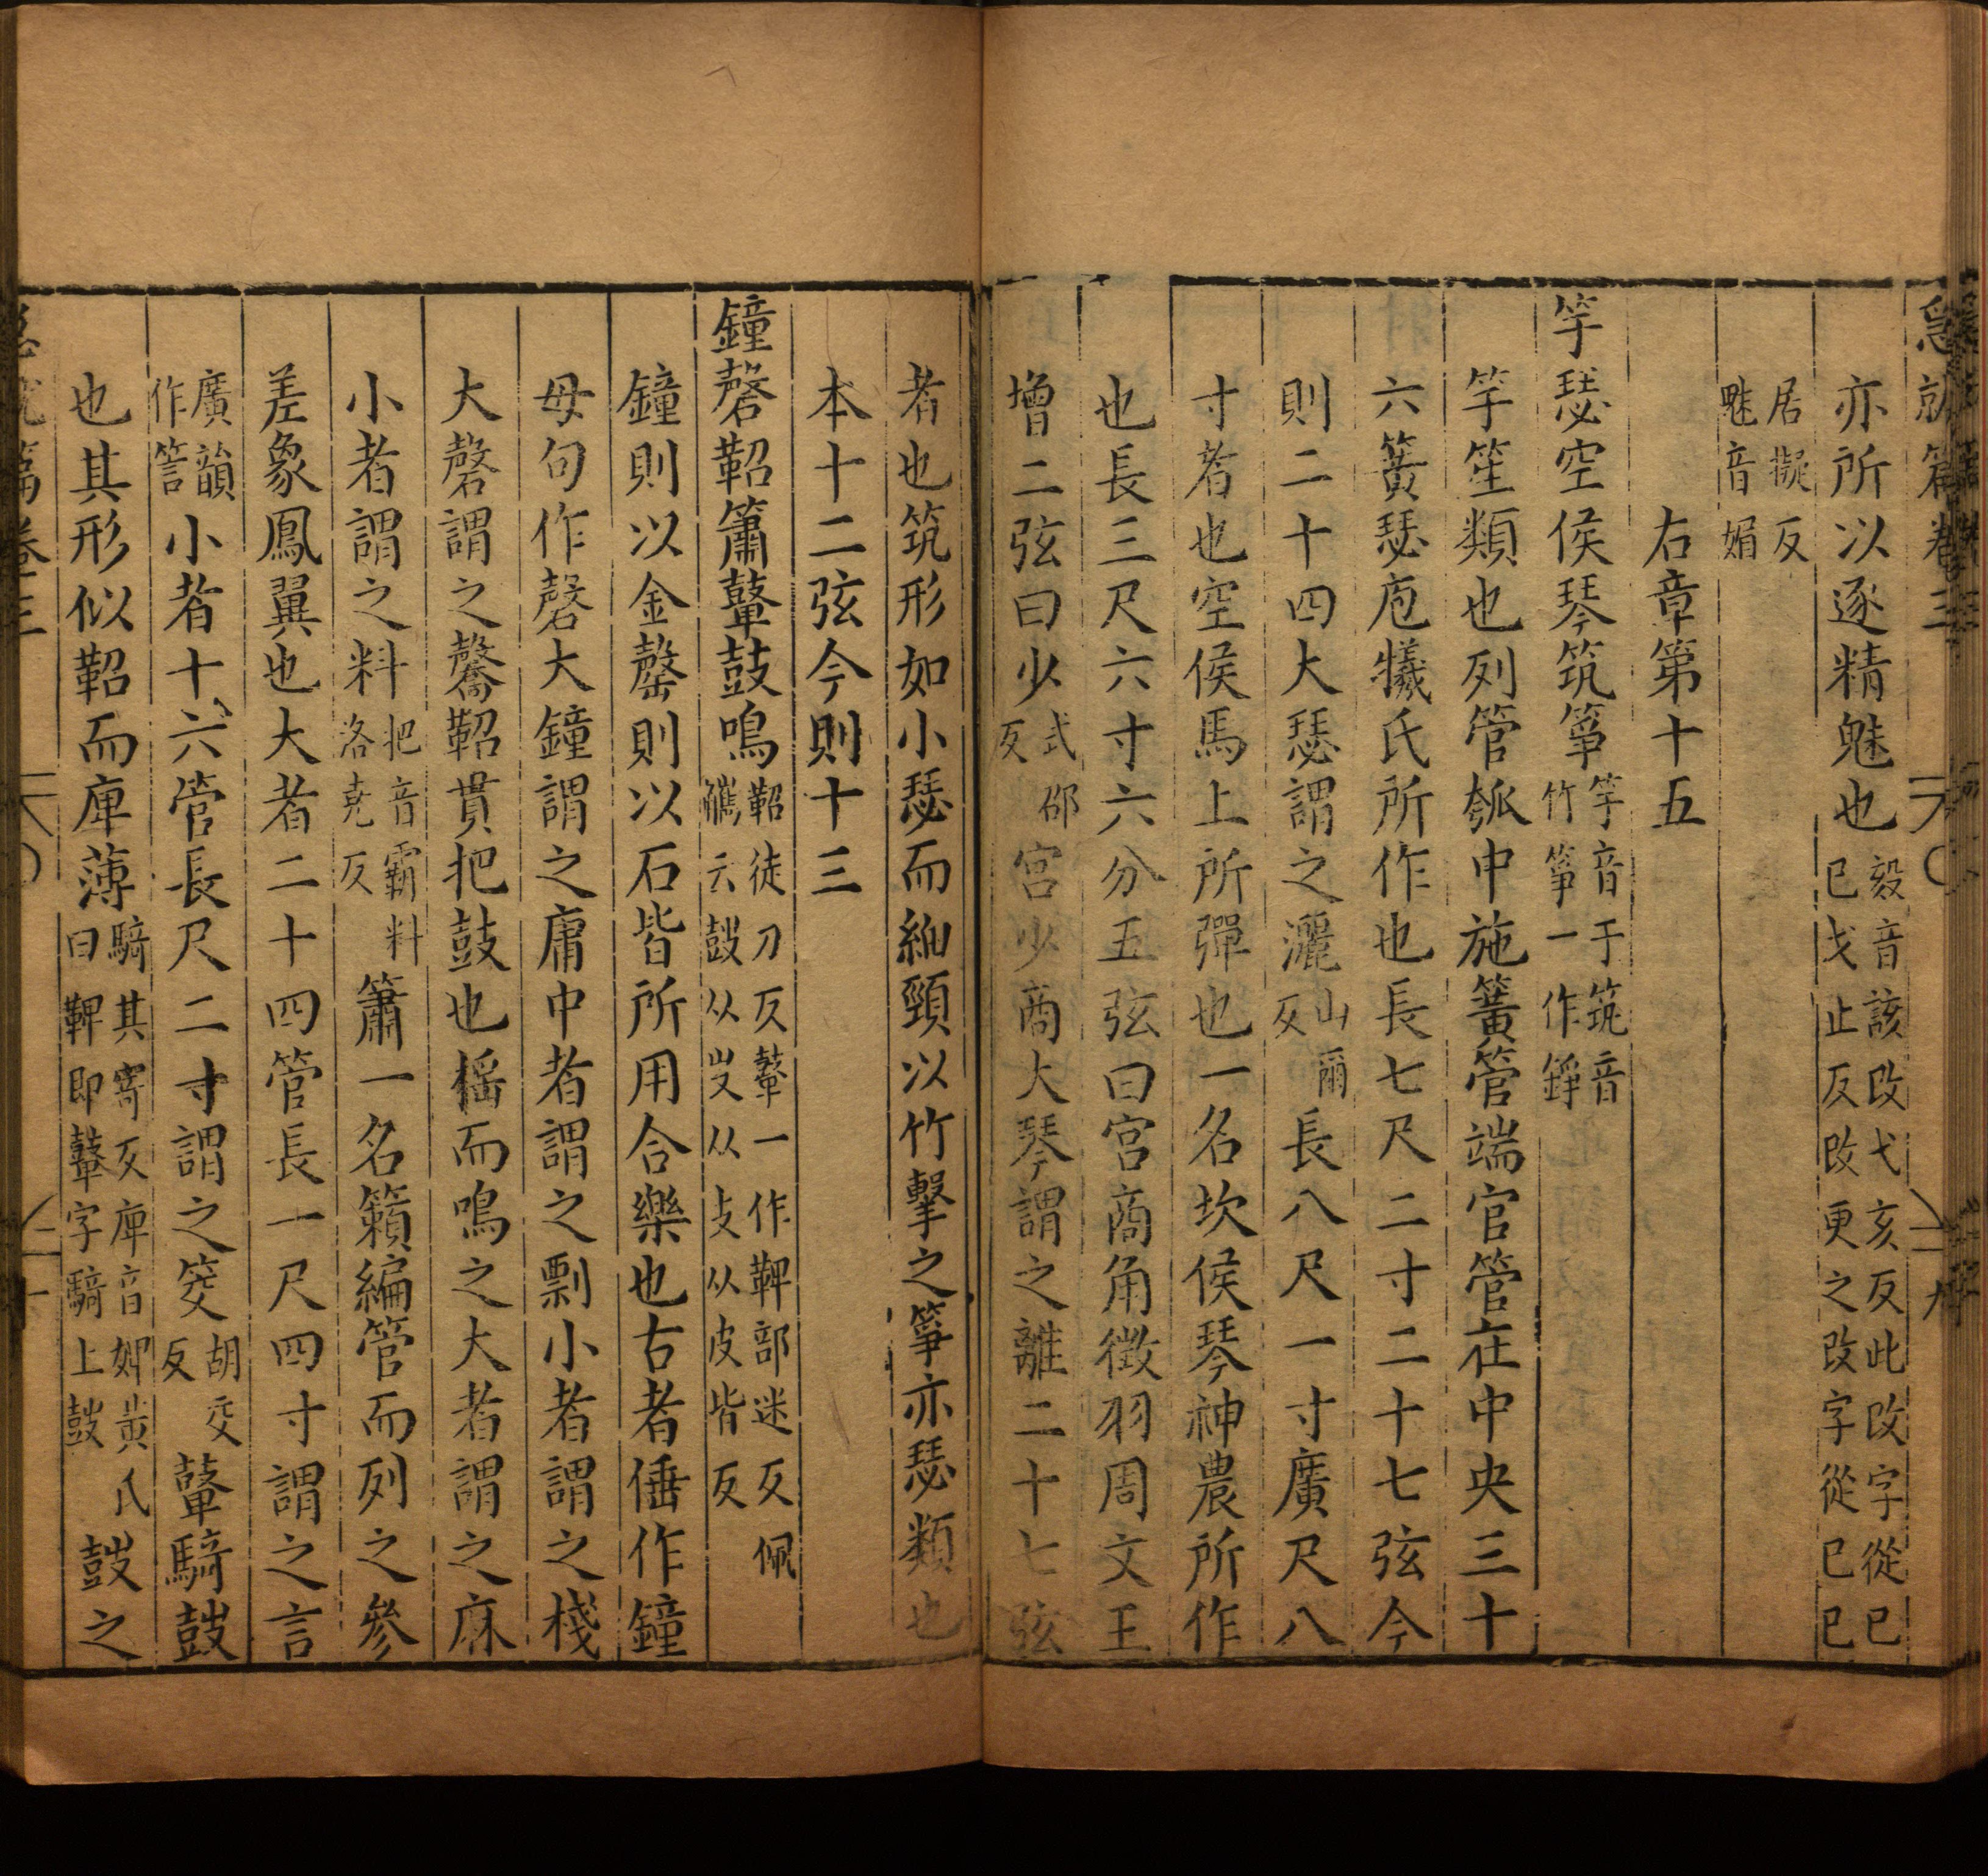 急就篇卷三
亦所以逐精魅也㱾音該改弋亥反此改字從已
巳戈止反改更之改字從巳已居擬反
魅音媚
右章第十五
竽瑟空侯琴筑箏竽音于筑音竹箏一作錚
竽笙類也列管匏中施簧管端宮管在中央三十
六簧瑟庖犧氏所作也長七尺二寸二十七弦今
則二十四大瑟謂之灑山爾反長八尺一寸廣尺八
寸者也空侯馬上所彈也一名坎侯琴神農所作
也長三尺六寸六分五弦曰宮商角徵羽周文王
增二弦曰少式邵反宮少商大琴謂之離二十七弦
者也筑形如小瑟而細頸以竹擊之箏亦瑟類也
本十二弦今則十三
鐘磬鞀簫鼙鼓鳴鞀徒刀反鼙一作鞞部迷反佩觿云鼓从壴从攴从皮皆反
鐘則以金磬則以石皆所用合樂也古者倕作鐘
毋句作磬大鐘謂之庸中者謂之剽小者謂之棧
大磬謂之毊鞀貫把鼓也搖而鳴之大者謂之麻
小者謂之料把音霸料洛堯反簫一名籟編管而列之參
差象鳳翼也大者二十四管長一尺四寸謂之言
廣韻作䇾小者十六管長尺二寸謂之筊胡交反鼙騎鼓
也其形似鞀而庳薄騎其寄反庳音婢黃氏曰鞞即鼙字騎上鼓鼓之